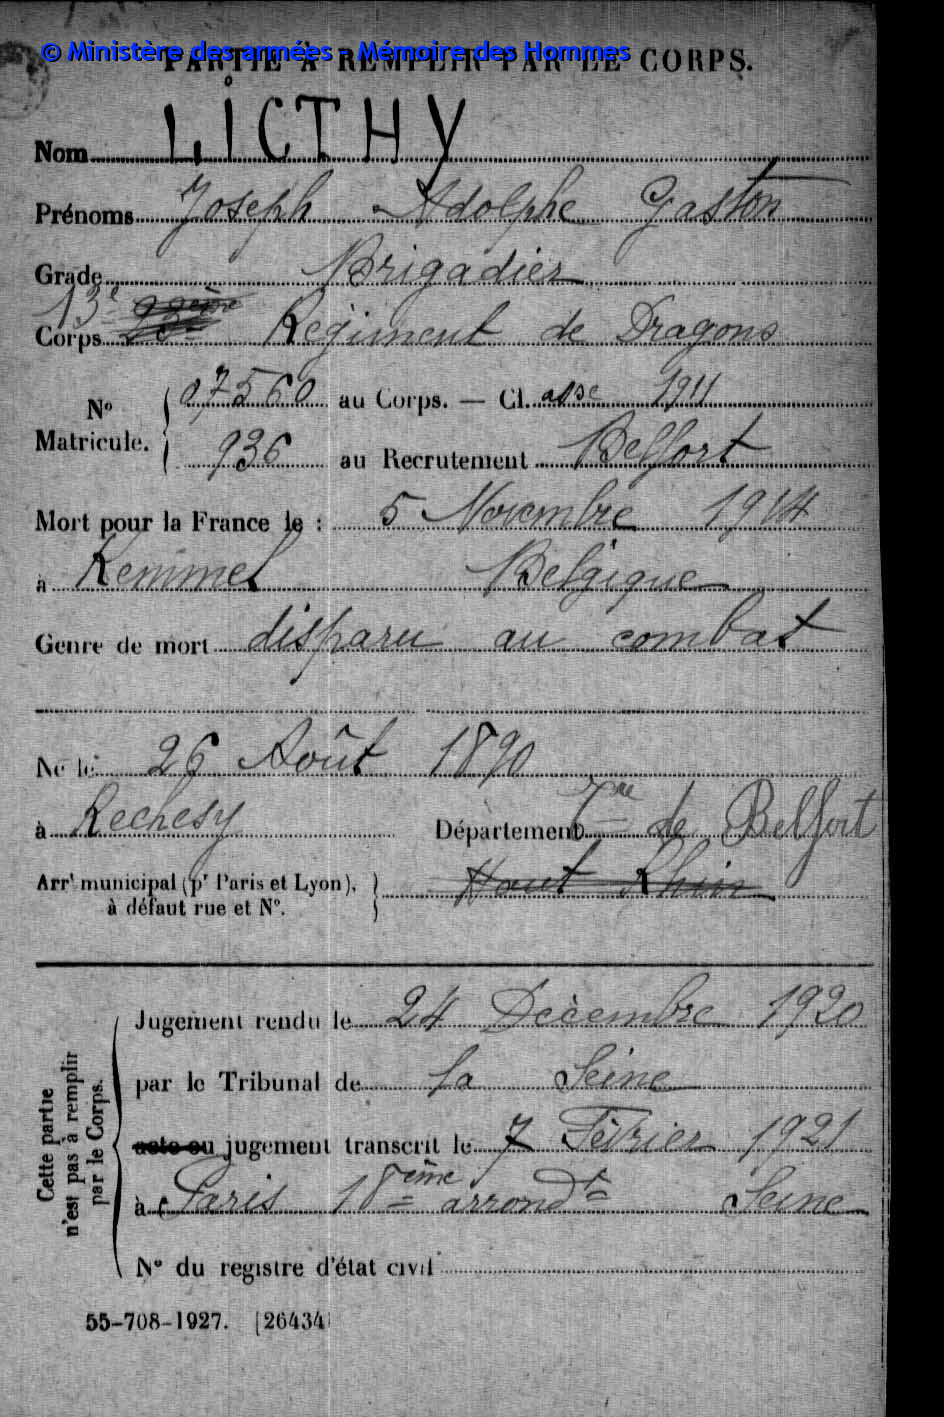 © Ministère des armées - Mémoire des Hommes
PARTIE À REMPLIR PAR LE CORPS.
Nom LICTHY
Prénoms Joseph Adolphe Gaston
Grade Brigadier
13e
Corps Régiment de Dragons
N° Matricule. 07560 au Corps. — Cl. asse 1911
936 au Recrutement Belfort
Mort pour la France le : 5 Novembre 1914
à Kemmel Belgique
Genre de mort disparu au combat
Né le 26 Août 1890
à Rechesy Département Tre de Belfort
Arrt municipal (pr Paris et Lyon), à défaut rue et N°. Haut Rhin
Cette partie n'est pas à remplir par le Corps.
Jugement rendu le 24 Décembre 1920
par le Tribunal de la Seine
acte ou jugement transcrit le 7 Février 1921
à Paris 18ème arrondt Seine
N° du registre d'état civil
55-708-1927. [26434]